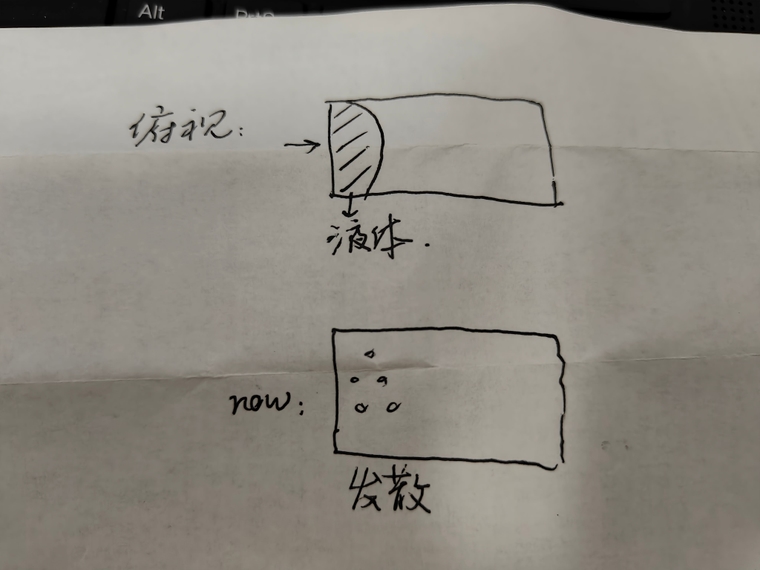 Alt
俯视:
液体.
now:
发散